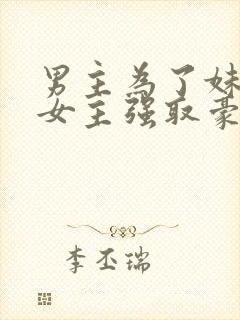 男主為了妹
女主强取豪
李丕瑞